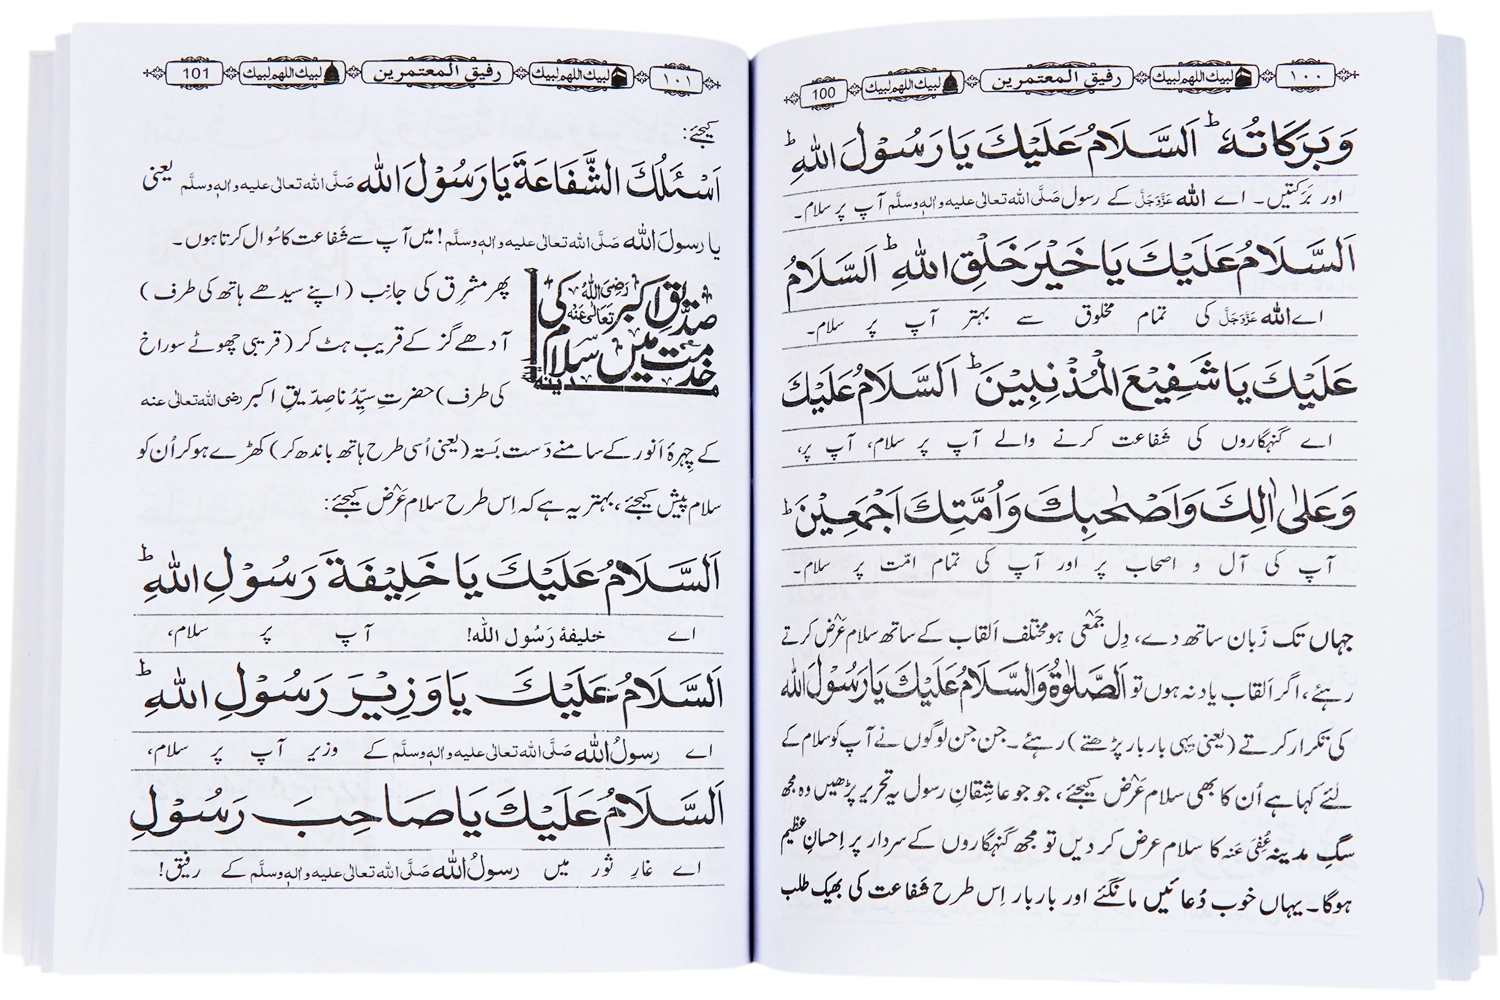 ۱۰۰ لبیک اللھم لبیک رفیق المعتمرین لبیک اللھم لبیک 100
وَ بَرَكَاتُهٗ ؕ اَلسَّلَامُ عَلَيْكَ يَا رَسُوْلَ اللهِ ؕ
اور بَرَکتیں۔ اے اللہ عَزَّوَجَلَّ کے رسول صَلَّی اللہ تعالٰی علیہ واٰلہٖ وسلَّم آپ پر سلام۔
اَلسَّلَامُ عَلَيْكَ يَا خَيْرَ خَلْقِ اللهِ ؕ اَلسَّلَامُ
اے اللہ عَزَّوَجَلَّ کی تمام مخلوق سے بہتر آپ پر سلام۔
عَلَيْكَ يَا شَفِيْعَ الْمُذْنِبِيْنَ ؕ اَلسَّلَامُ عَلَيْكَ
اے گنہگاروں کی شَفاعت کرنے والے آپ پر سلام، آپ پر،
وَ عَلٰى اٰلِكَ وَ اَصْحٰبِكَ وَ اُمَّتِكَ اَجْمَعِيْنَ ؕ
آپ کی آل و اصحاب پر اور آپ کی تمام امّت پر سلام۔
جہاں تک زَبان ساتھ دے، دِل جَمْعی ہو مختلف اَلقاب کے ساتھ سلام عَرْض کرتے
رہئے، اگر اَلقاب یاد نہ ہوں تو اَلصَّلٰوةُ وَالسَّلَامُ عَلَيْكَ يَا رَسُوْلَ الله
کی تکرار کرتے (یعنی یہی بار بار پڑھتے) رہئے۔ جن جن لوگوں نے آپ کو سلام کے
لئے کہا ہے اُن کا بھی سلام عَرْض کیجئے، جو جو عاشقانِ رسول یہ تحریر پڑھیں وہ مجھ
سگِ مدینہ عُفِیَ عَنہ کا سلام عرض کر دیں تو مجھ گنہگاروں کے سردار پر اِحسانِ عظیم
ہوگا۔ یہاں خوب دُعائیں مانگئے اور بار بار اِس طرح شَفاعت کی بھیک طلب
۱۰۱ لبیک اللھم لبیک رفیق المعتمرین لبیک اللھم لبیک 101
کیجئے:
اَسْئَلُكَ الشَّفَاعَةَ يَا رَسُوْلَ الله صَلَّی اللہ تعالٰی علیہ واٰلہٖ وسلَّم یعنی
یا رسولَ اللہ صَلَّی اللہ تعالٰی علیہ واٰلہٖ وسلَّم! میں آپ سے شَفاعت کا سُوال کرتا ہوں۔
صدیقِ اکبر رَضِیَ اللہُ تَعَالٰی عَنْہُ کی
خدمت میں سلام
مدینہ
پھر مشرِق کی جانِب (اپنے سیدھے ہاتھ کی طرف)
آدھے گز کے قریب ہٹ کر (قریبی چھوٹے سوراخ
کی طرف) حضرتِ سیِّدُنا صِدّیقِ اکبر رضی اللہ تعالٰی عنہ
کے چِہرۂ اَنور کے سامنے دَست بستہ (یعنی اُسی طرح ہاتھ باندھ کر) کھڑے ہو کر اُن کو
سلام پیش کیجئے، بہتر یہ ہے کہ اِس طرح سلام عَرْض کیجئے:
اَلسَّلَامُ عَلَيْكَ يَا خَلِيْفَةَ رَسُوْلِ اللهِ ؕ
اے خلیفۂ رَسُول اللہ! آپ پر سلام،
اَلسَّلَامُ عَلَيْكَ يَا وَزِيْرَ رَسُوْلِ اللهِ ؕ
اے رسولُ اللہ صَلَّی اللہ تعالٰی علیہ واٰلہٖ وسلَّم کے وزیر آپ پر سلام،
اَلسَّلَامُ عَلَيْكَ يَا صَاحِبَ رَسُوْلِ
اے غارِ ثور میں رسولُ اللہ صَلَّی اللہ تعالٰی علیہ واٰلہٖ وسلَّم کے رفیق!